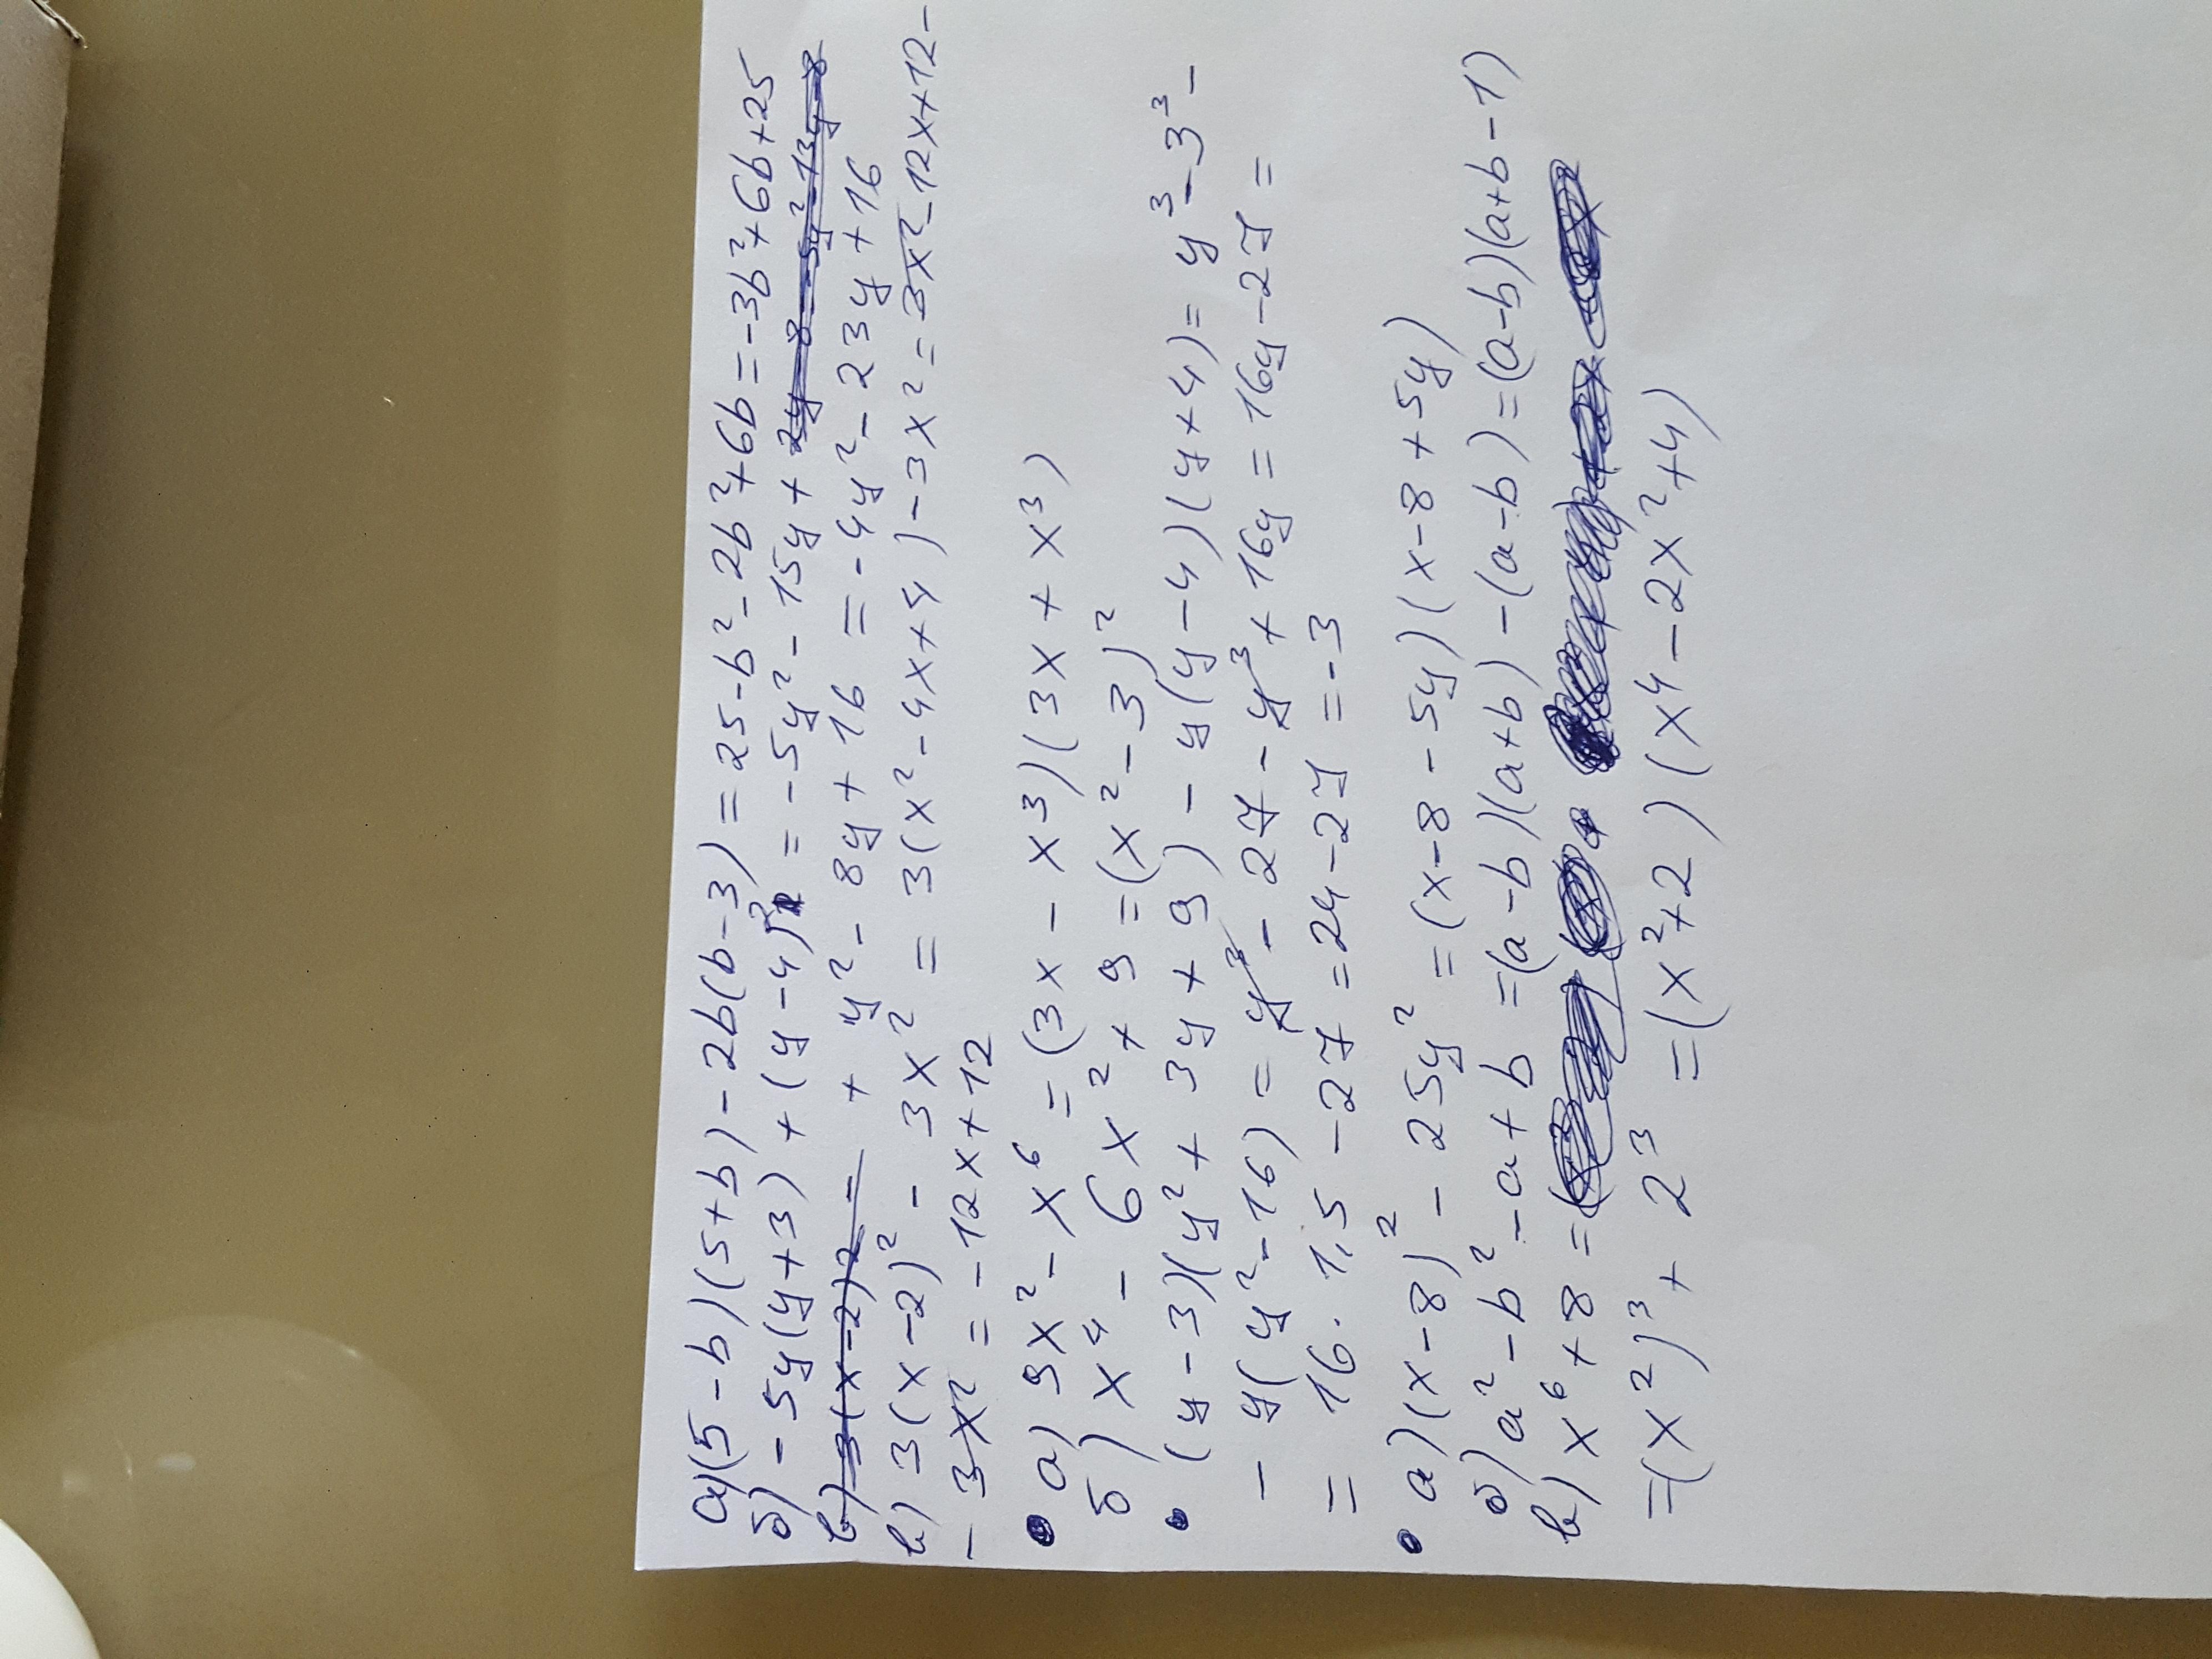 а) (5-b)(5+b)-2b(b-3)=25-b²-2b²+6b=-3b²+6b+25
б) -5y(y+3)+(y-4)²=-5y²-15y+ 2y-8-5y²-13y-8
в) 3(x-2)2= + y²-8y+16 = -4y²-23y+16
в) 3(x-2)²-3x² = 3(x²-4x+4)-3x²=3x²-12x+12-
-3x²=-12x+12
• а) 9x²-x⁶=(3x-x³)(3x+x³)
б) x⁴-6x²+9=(x²-3)²
• (y-3)(y²+3y+9)-y(y-4)(y+4)=y³-3³-
-y(y²-16)=y³-27-y³+16y=16y-27=
=16·1,5-27=24-27=-3
• а) (x-8)²-25y²=(x-8-5y)(x-8+5y)
б) a²-b²-a+b=(a-b)(a+b)-(a-b)=(a-b)(a+b-1)
в) x⁶+8=
=(x²)³+2³=(x²+2)(x⁴-2x²+4)